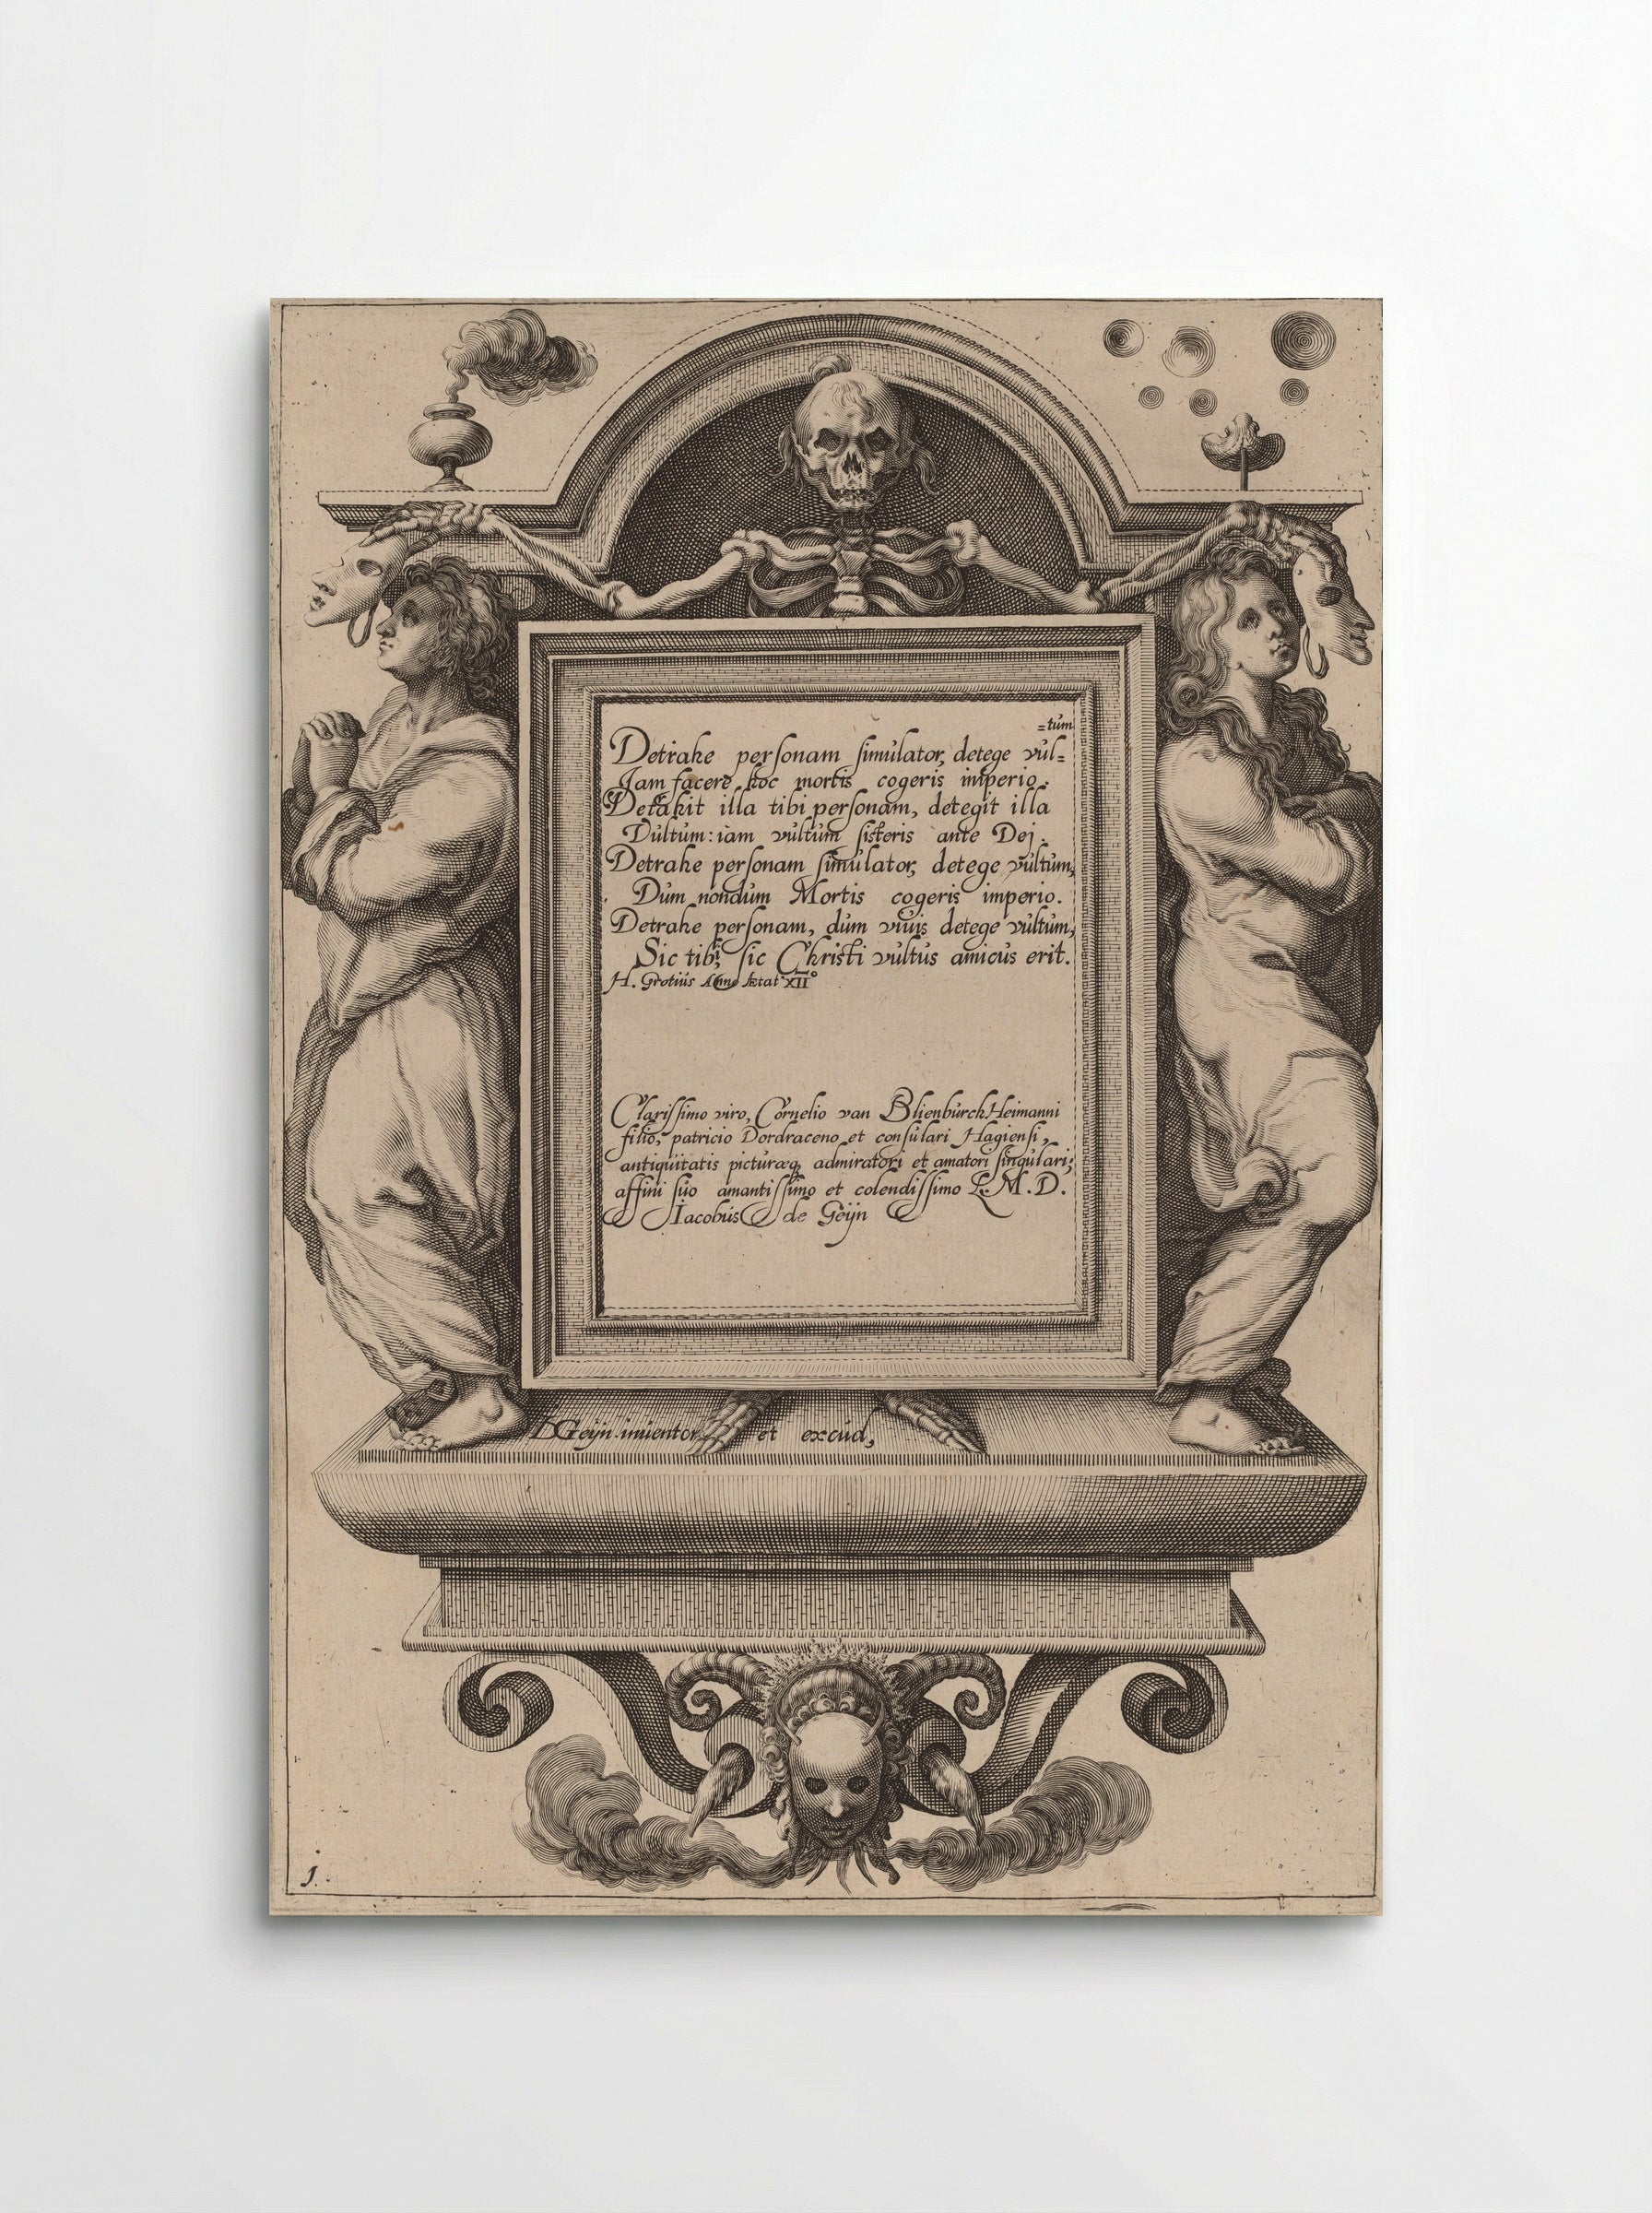 =tum
Detrahe personam simulator, detege vul=
Jam facere hoc mortis cogeris imperio.
Detrahit illa tibi personam, detegit illa
Vultum: iam vultum sisteris ante Dei.
Detrahe personam simulator, detege vultum,
Dum nondum Mortis cogeris imperio.
Detrahe personam, dum viuis detege vultum,
Sic tibi, sic Christi vultus amicus erit.
H. Grotius Anno Ætat XII°
Clarissimo viro, Cornelio van Blienburch Heimanni
filio, patricio Dordraceno et consulari Hagiensi,
antiquitatis picturæq, admiratori et amatori singulari;
affini suo amantissimo et colendissimo L. M. D.
Iacobus de Geijn
DGeijn inuentor et excud,
1.